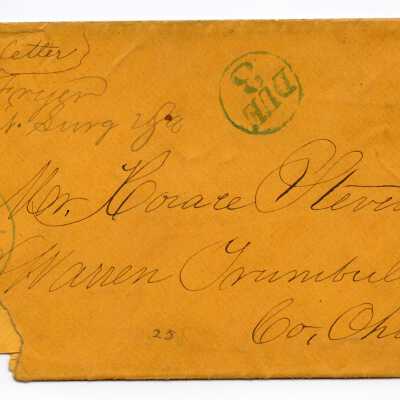 Letter
Fryer
Surg
DUE 3
Mr. Horace Steven
Warren Trumbull
Co, Ohi
25